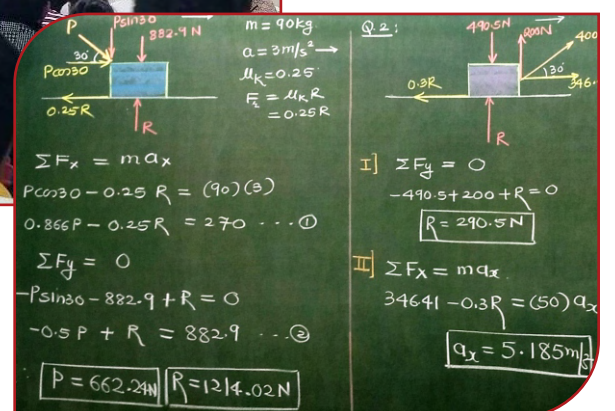 P
Psin30
882.9 N
30°
Pcos30
0.25R
R
m = 90kg.
a = 3m/s² →
μK = 0.25
F = μK R
= 0.25R
ΣFx = max
Pcos30 - 0.25 R = (90)(3)
0.866P - 0.25R = 270 ... ①
ΣFy = 0
-Psin30 - 882.9 + R = 0
-0.5P + R = 882.9 ... ②
P = 662.24N R = 1214.02N
Q.2:
490.5N
200N
400
30°
346.
0.3R
R
I] ΣFy = 0
-490.5+200+R=0
R = 290.5N
II] ΣFx = max.
34641 - 0.3R = (50) ax
ax = 5.185m/s²